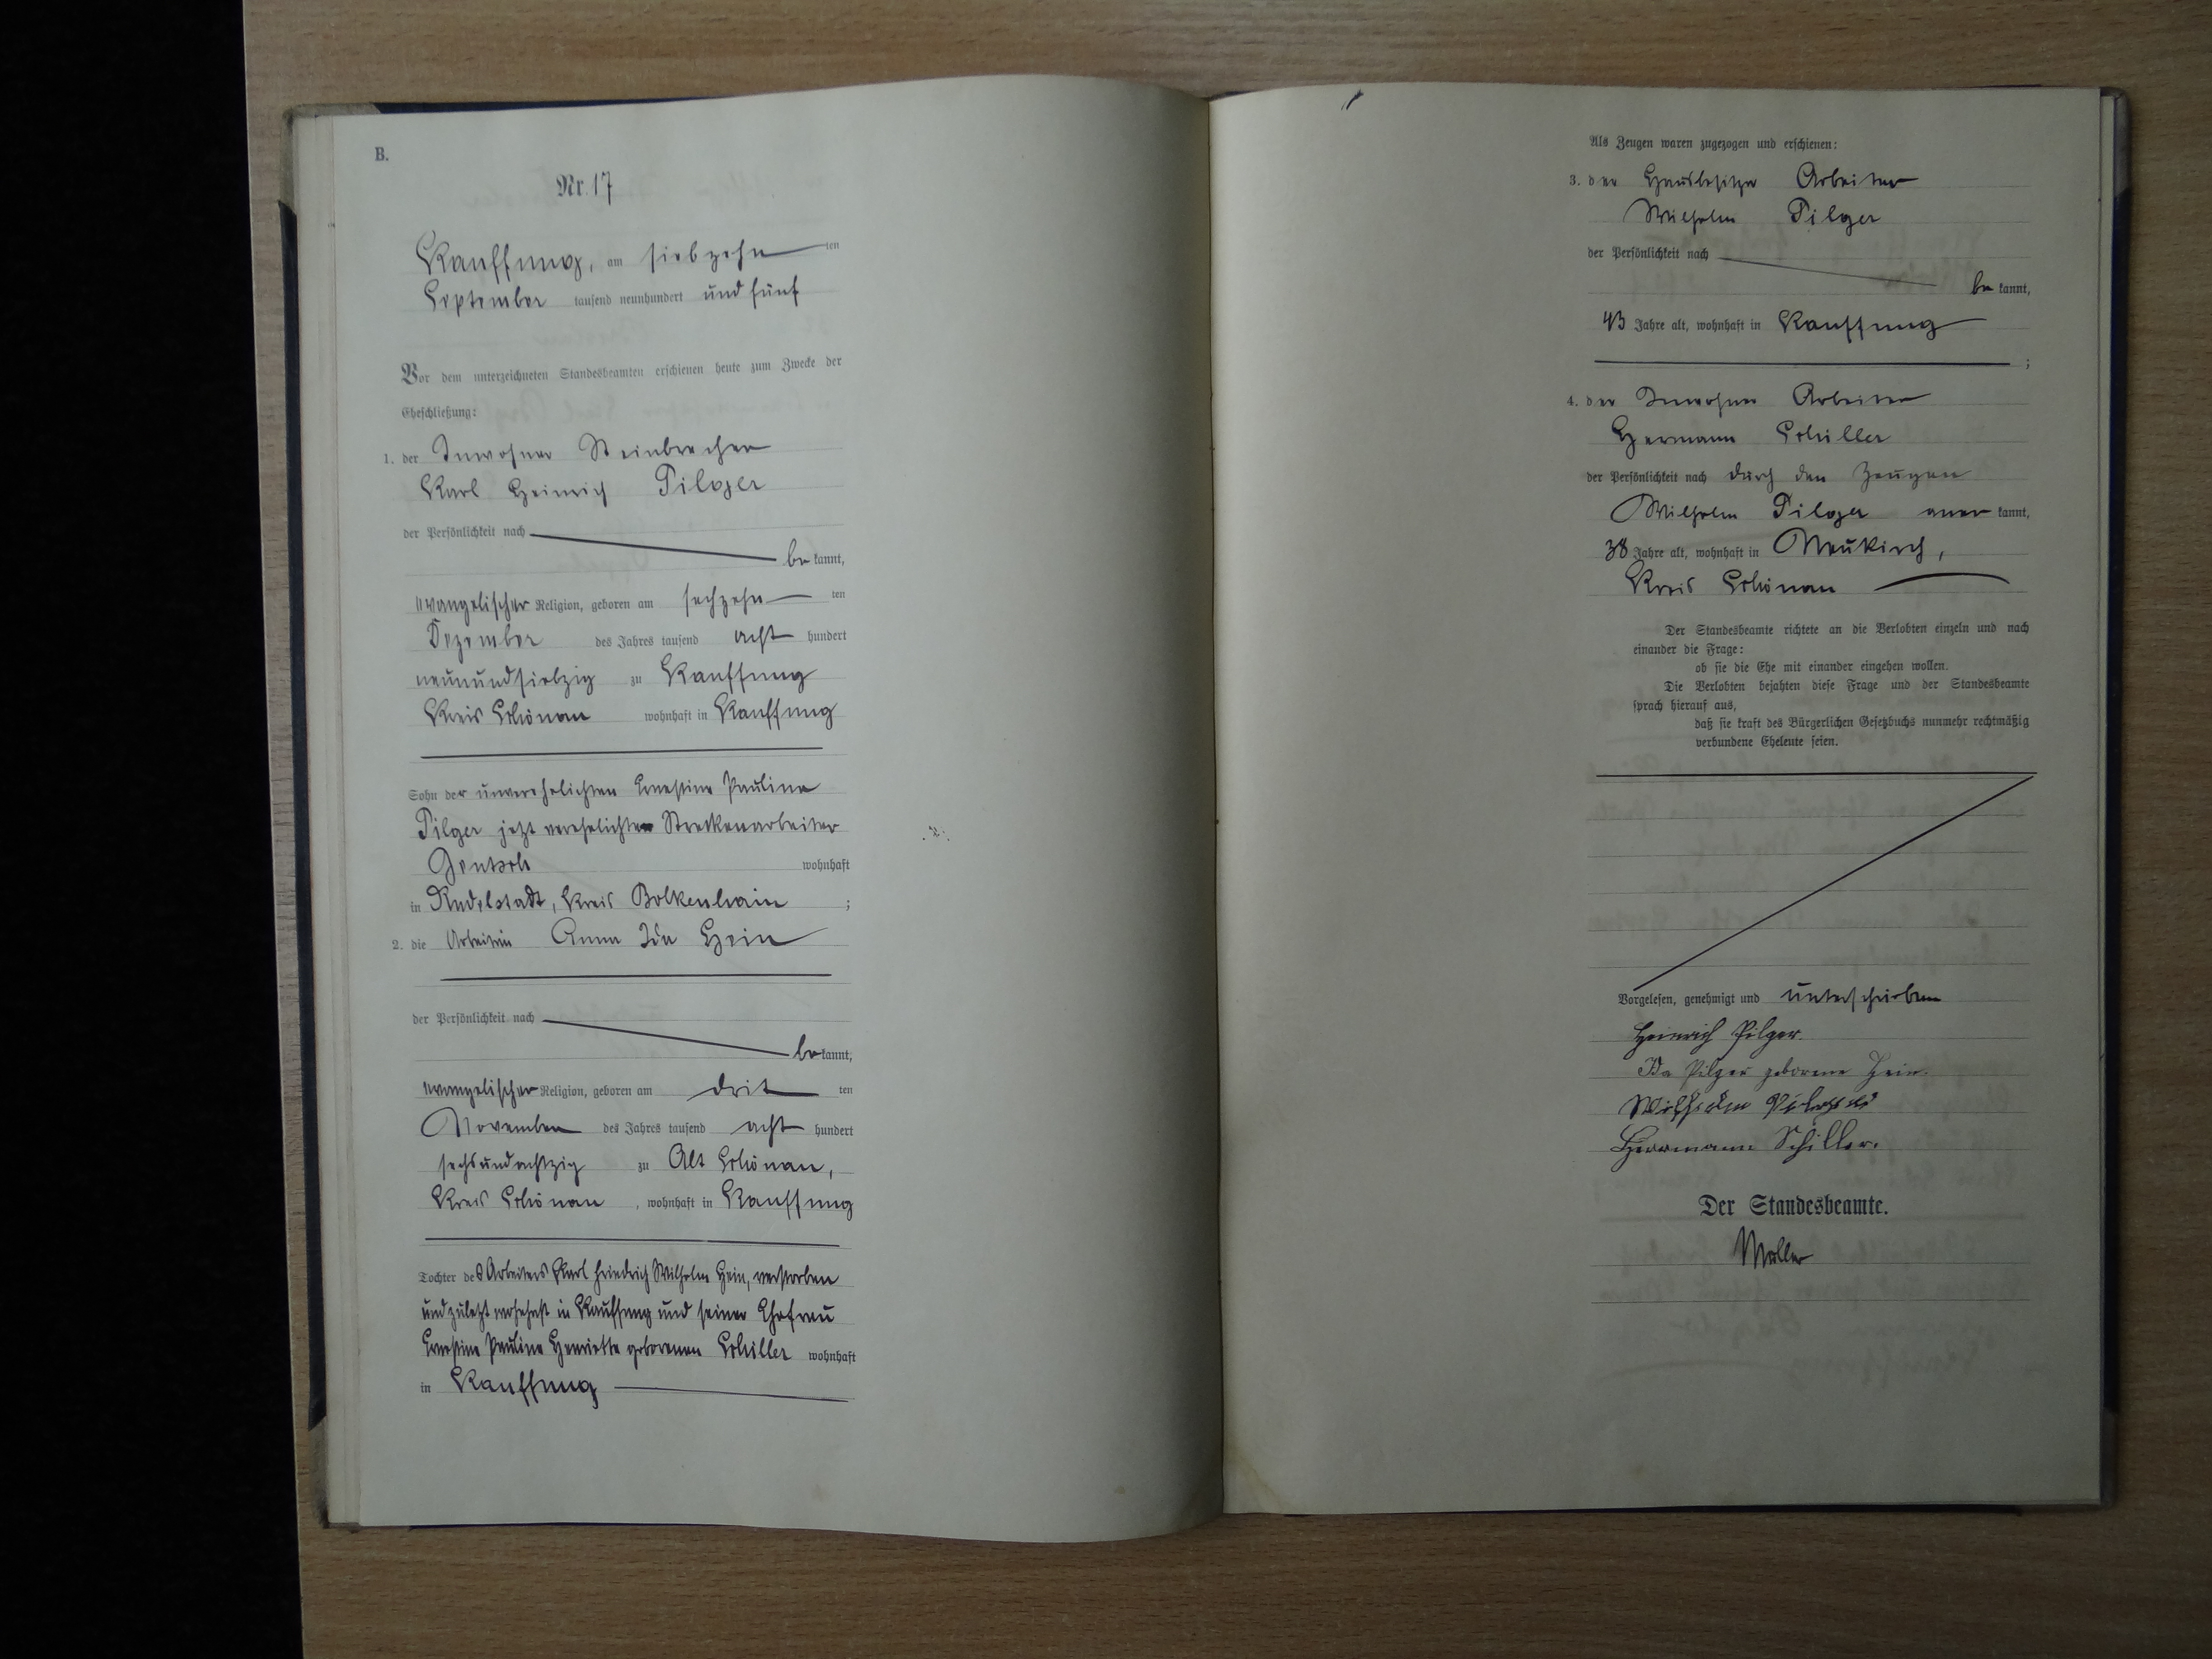 B.
Nr. 17
Kauffung, am siebzehn ten
September tausend neunhundert und fünf
Vor dem unterzeichneten Standesbeamten erschienen heute zum Zwecke der
Eheschließung:
1. der Inwohner Steinbrecher
Karl Heinrich Pilger
der Persönlichkeit nach
be kannt,
evangelischer Religion, geboren am sechzehn ten
Dezember des Jahres tausend acht hundert
neunundsiebzig zu Kauffung
Kreis Schönau wohnhaft in Kauffung
Sohn der unverehelichten Ernestine Pauline
Pilger jetzt verehelichten Streckenarbeiter
Gentsch wohnhaft
in Rudelstadt, Kreis Bolkenhain ;
2. die Arbeiterin Anna Ida Hein
der Persönlichkeit nach
be kannt,
evangelischer Religion, geboren am drit ten
November des Jahres tausend acht hundert
sechsundachtzig zu Alt Schönau,
Kreis Schönau , wohnhaft in Kauffung
Tochter des Arbeiters Karl Friedrich Wilhelm Hein, verstorben
und zuletzt wohnhaft in Kauffung und seiner Ehefrau
Ernestine Pauline Henriette geborenen Schiller wohnhaft
in Kauffung
Als Zeugen waren zugezogen und erschienen:
3. der Hausbesitzer Arbeiter
Wilhelm Pilger
der Persönlichkeit nach
be kannt,
43 Jahre alt, wohnhaft in Kauffung
;
4. der Inwohner Arbeiter
Hermann Schiller
der Persönlichkeit nach durch den Zeugen
Wilhelm Pilger aner kannt,
38 Jahre alt, wohnhaft in Neukirch,
Kreis Schönau
Der Standesbeamte richtete an die Verlobten einzeln und nach
einander die Frage:
ob sie die Ehe mit einander eingehen wollen.
Die Verlobten bejahten diese Frage und der Standesbeamte
sprach hierauf aus,
daß sie kraft des Bürgerlichen Gesetzbuchs nunmehr rechtmäßig
verbundene Eheleute seien.
Vorgelesen, genehmigt und unterschrieben
Heinrich Pilger.
Ida Pilger geborene Hein.
Wilhelm Pilger
Herrmann Schiller.
Der Standesbeamte.
Müller